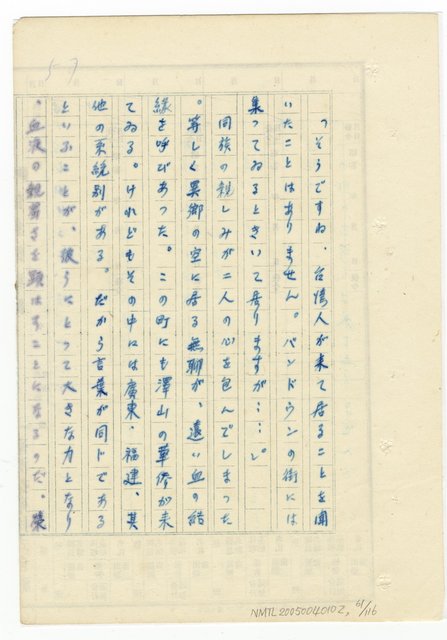 57
「そうですね、台湾人が来て居ることを聞
いたことはありません。バンドウンの街には
集ってゐるときいて居りますが……」。
同族の親しみが二人の心を包んでしまった
。等しく異郷の空に居る無聊が、遠い血の結
縁を呼びあった。この町にも澤山の華僑が来
てゐる。けれどもその中には廣東、福建、其
他の系統別がある。だから言葉が同じである
といふことが、彼らにとって大きな力となり
、血液の親密さを頭はすことになるのだ。
NMTL20050040102, 61/116